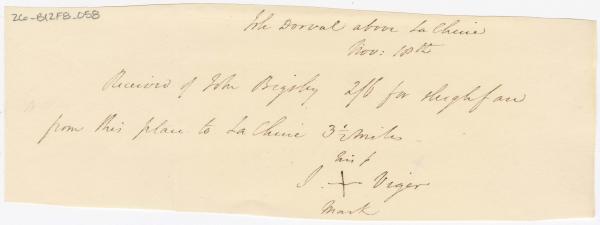 26-B12FB_058
Isle Dorval above La Chine
Nov: 10th
Received of John Bigsby 2/6 for
from this place to La Chine 3 1/2 miles
his
J. X Viger
Mark